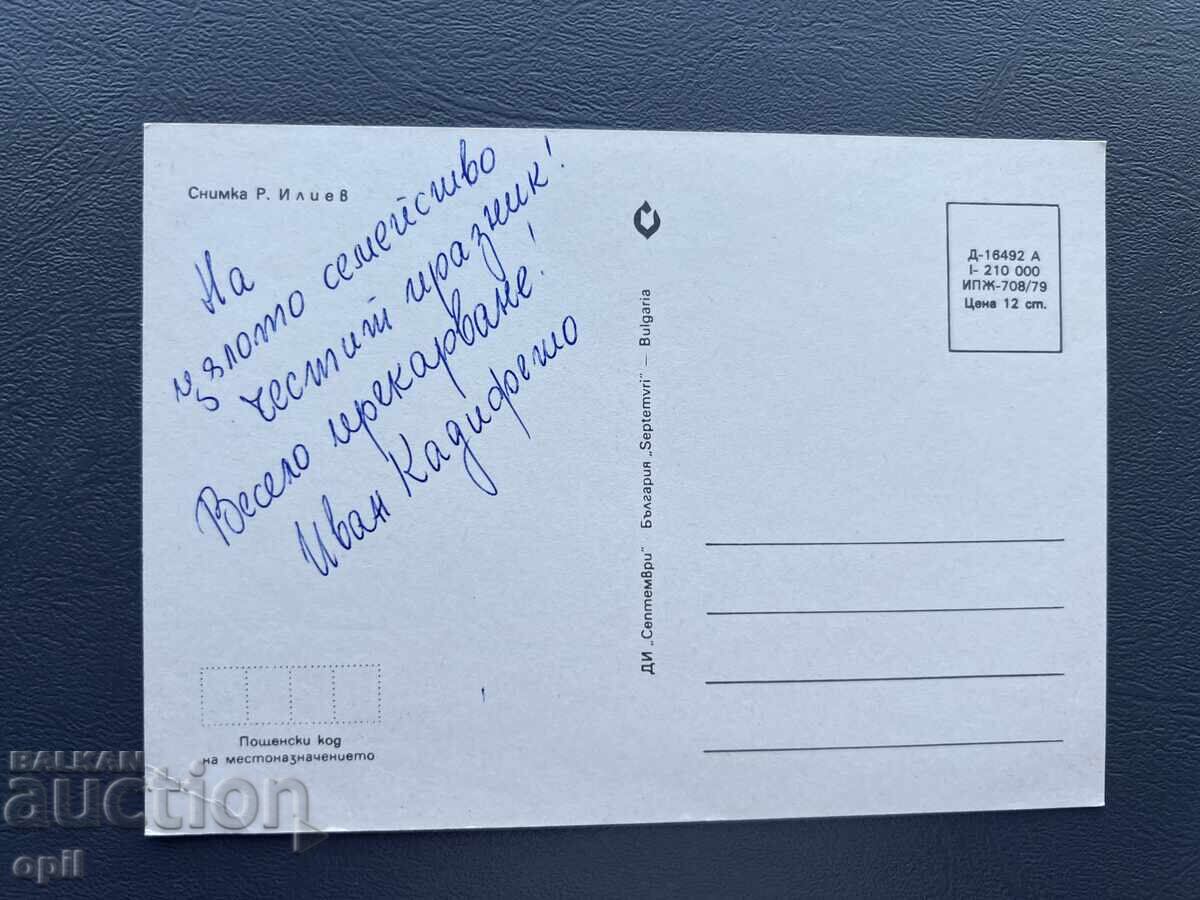 Снимка Р. Илиев
На
цялото семейство
честит празник!
Весело прекарване!
Иван Кадифето
Пощенски код
на местоназначението
ДИ „Септември" България „Septemvri" – Bulgaria
Д-16492 А
I- 210 000
ИПЖ-708/79
Цена 12 ст.
BALKAN
auction
opil